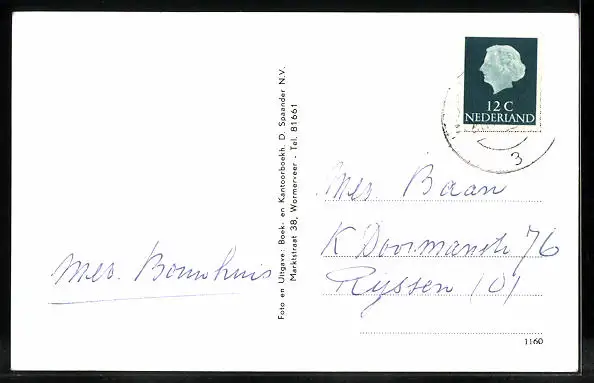 12 C
NEDERLAND
3
Foto en Uitgave: Boek- en Kantoorboekh. D. Spaander N.V.
Marktstraat 38, Wormerveer - Tel. 81661
Mej. Baan
K Doormanstr 76
Rijssen (O)
Mej. Bouwhuis
1160